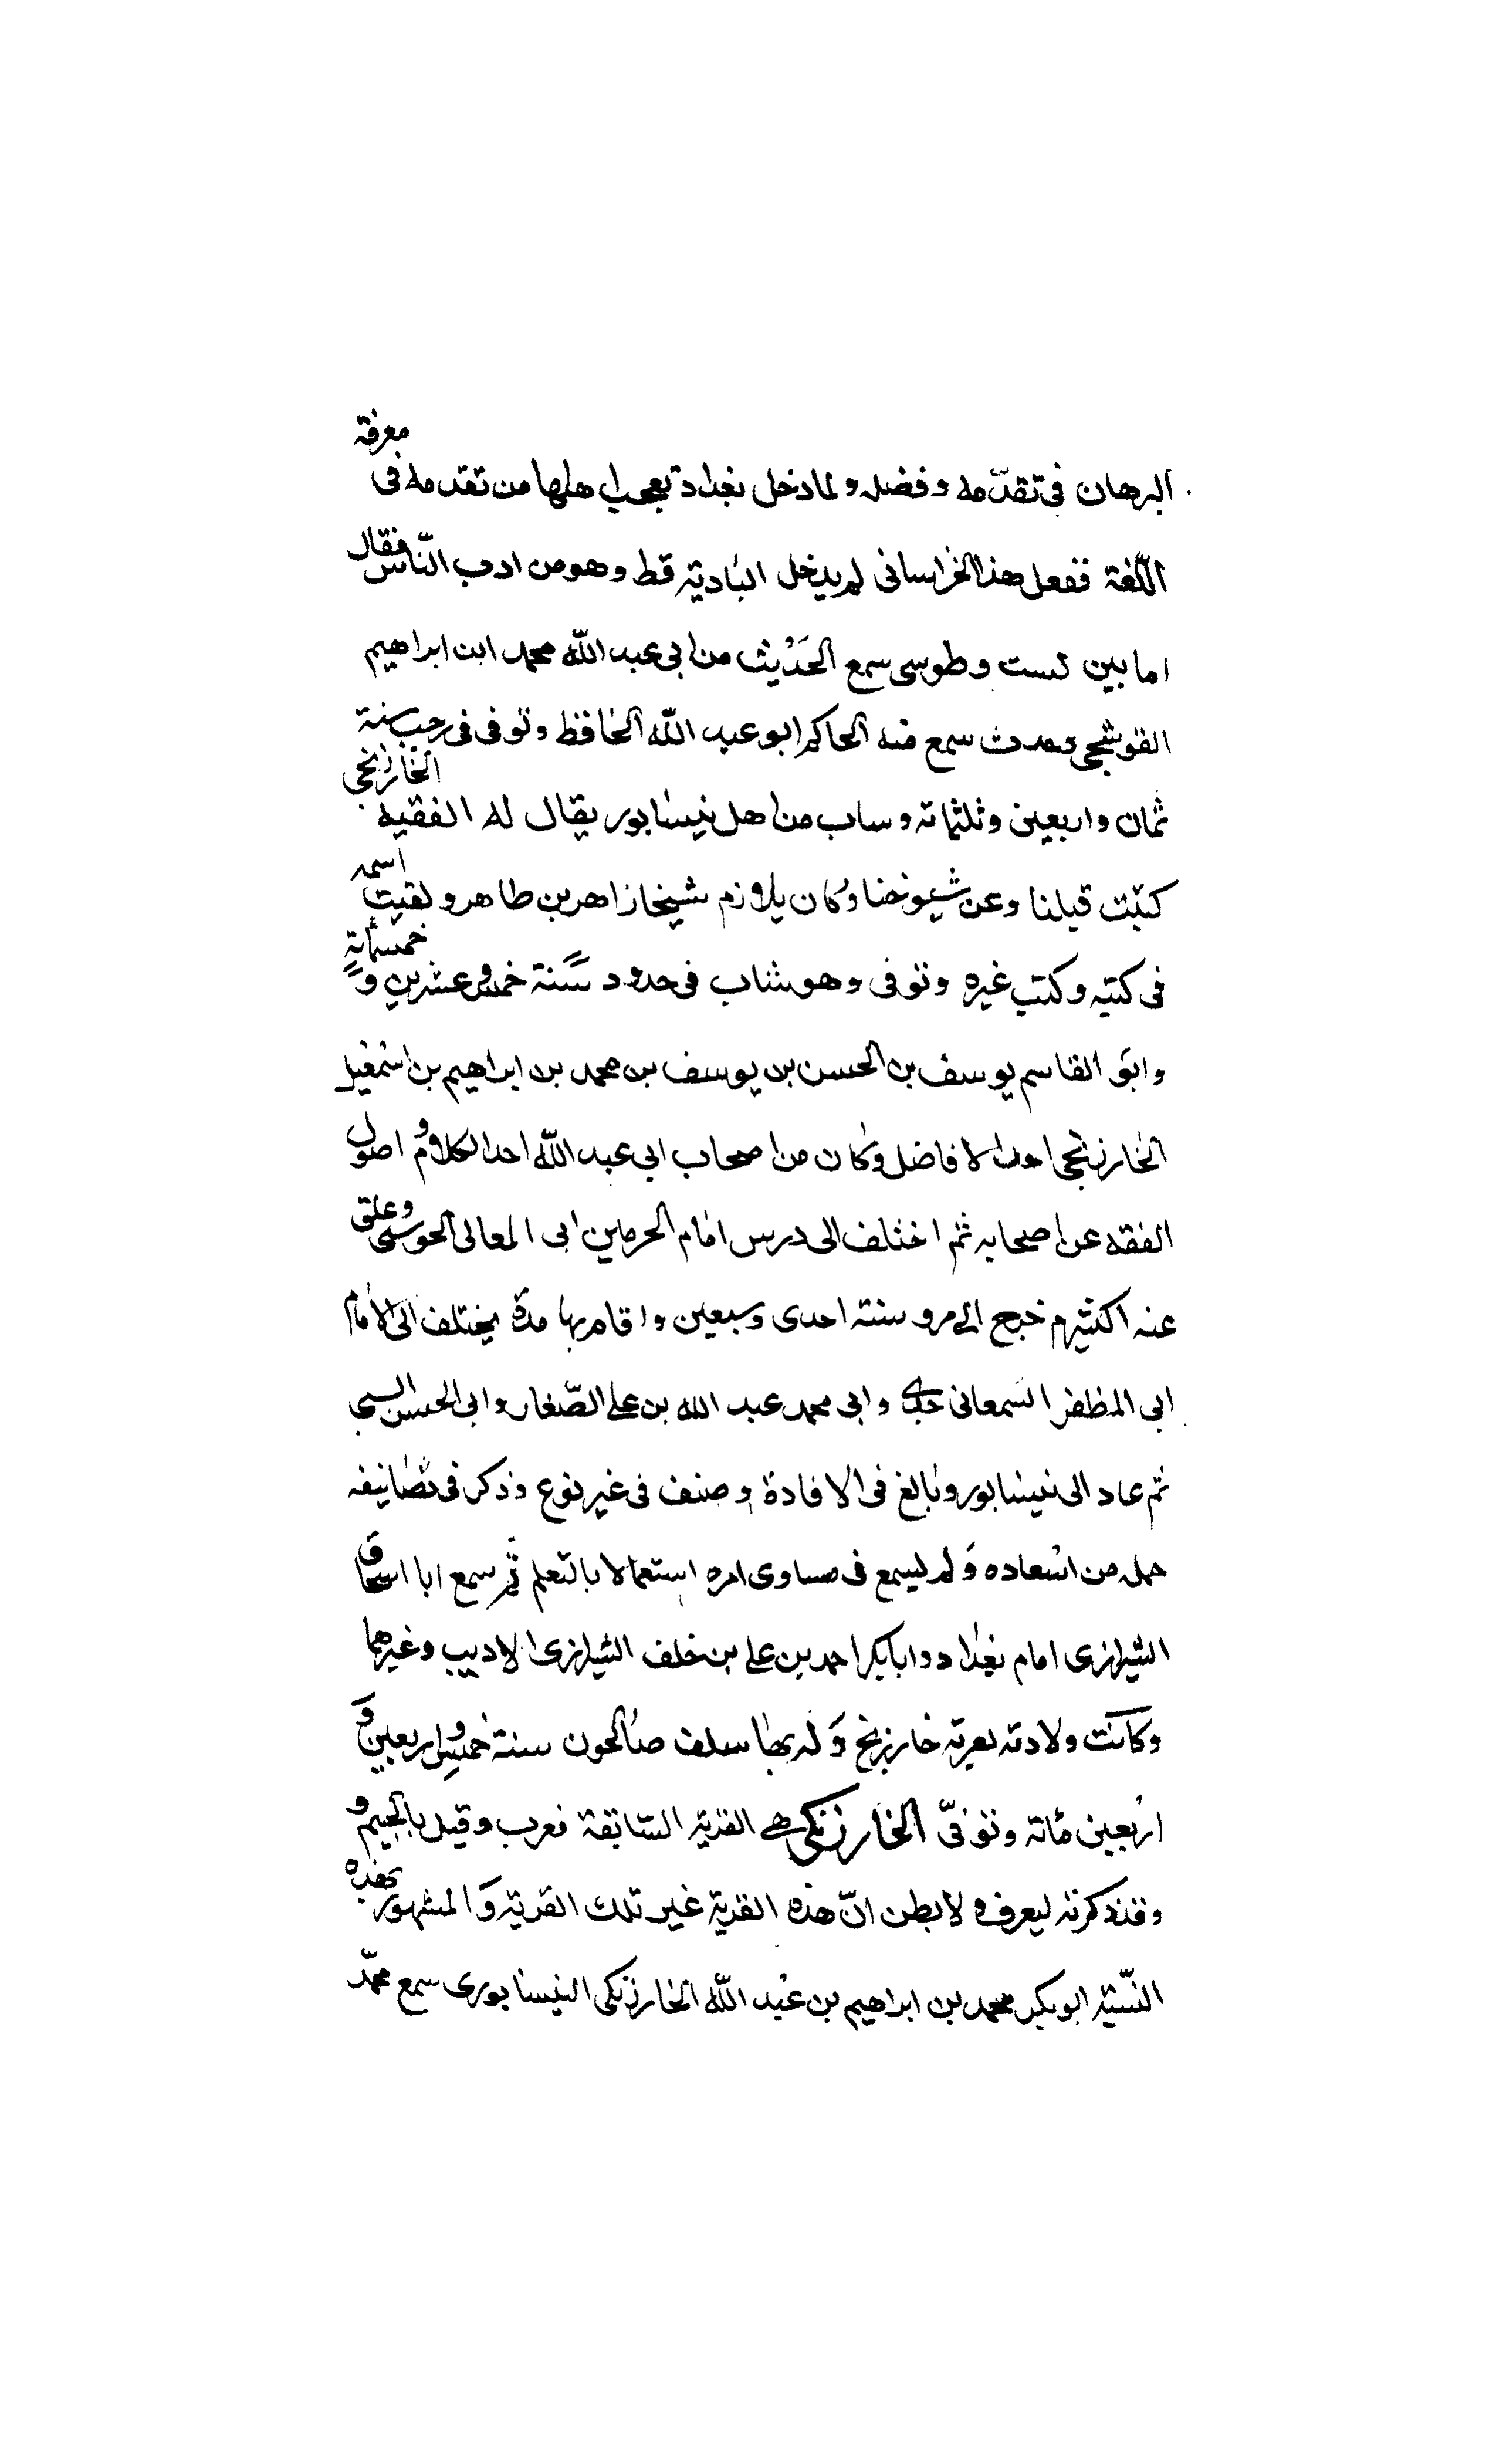 البرهان فى تقدّمه وفضله ولما دخل بغداد تعجب اهلها من تقدمه فى معرفة
اللّغة ففعل هذا الخراسانى لم يدخل البادية قط وهو من ادب النّاس فقال
اما بين لست وطوسى سمع الحَدْيث من ابى عبد اللّه محمد ابن ابراهيم
القوشجى وحدث سمع منه الحاكم ابو عبد اللّه الحافظ وتوفى فى رجب سنة
ثمان واربعين وثلثماته وساب من اهل نيسابور يقال له الفقيه الخارزنجى
كتبت قبلنا وعن شيوخنا وكان يلازم شيخا زاهر بن طاهر ولقيت اسمه
فى كتبه وكتب غيره وتوفى وهو شاب فى حدود سنة خمس وعشرين و خمسمائة
وابو القاسم يوسف بن الحسن بن يوسف بن محمد بن ابراهيم بن اسمعيل
الخارزنجى احد الافاضل وكان من اصحاب ابى عبد اللّه احد الكلام و اصول
الفقه عن اصحابه ثم اختلف الى درس امام الحرمين ابى المعالى الحوسى وعلق
عنه اكثرهم خرج الى مرو سنة احدى وسبعين واقام بها مدة يختلف الى الامام
ابى المظفر السمعانى وابى محمد عبد الله بن على الصّفار وابى الحسن
ثم عاد الى نيسابور وبالغ فى الافادة وصنف فى غير نوع وذكر فى تصانيفه
حمله من اسعاده وَلم ليسمع فى مساوى امره استعمالا بالتعلم ثم سمع ابا اسحاق
الشيرازى امام بغداد وابا بكر احمد بن على بن خلف الشيرازى الاديب وغيرهما
وكانت ولادته بعربة خارزنج وَله بها سلف صالحون سنة خمس و اربعين و
اربعين مائة وتوفىّ الخارزنكى هے القرية السّابقة فعرب وقيل بالجيم و
وقد ذكرته ليعرف لابطن انّ هذه القرية غير تلك القرية وَالمشهور بهذه
النّسبة ابو بكر محمد بن ابراهيم بن عبد اللّه الخارزنكى النيسابورى سمع محمّد